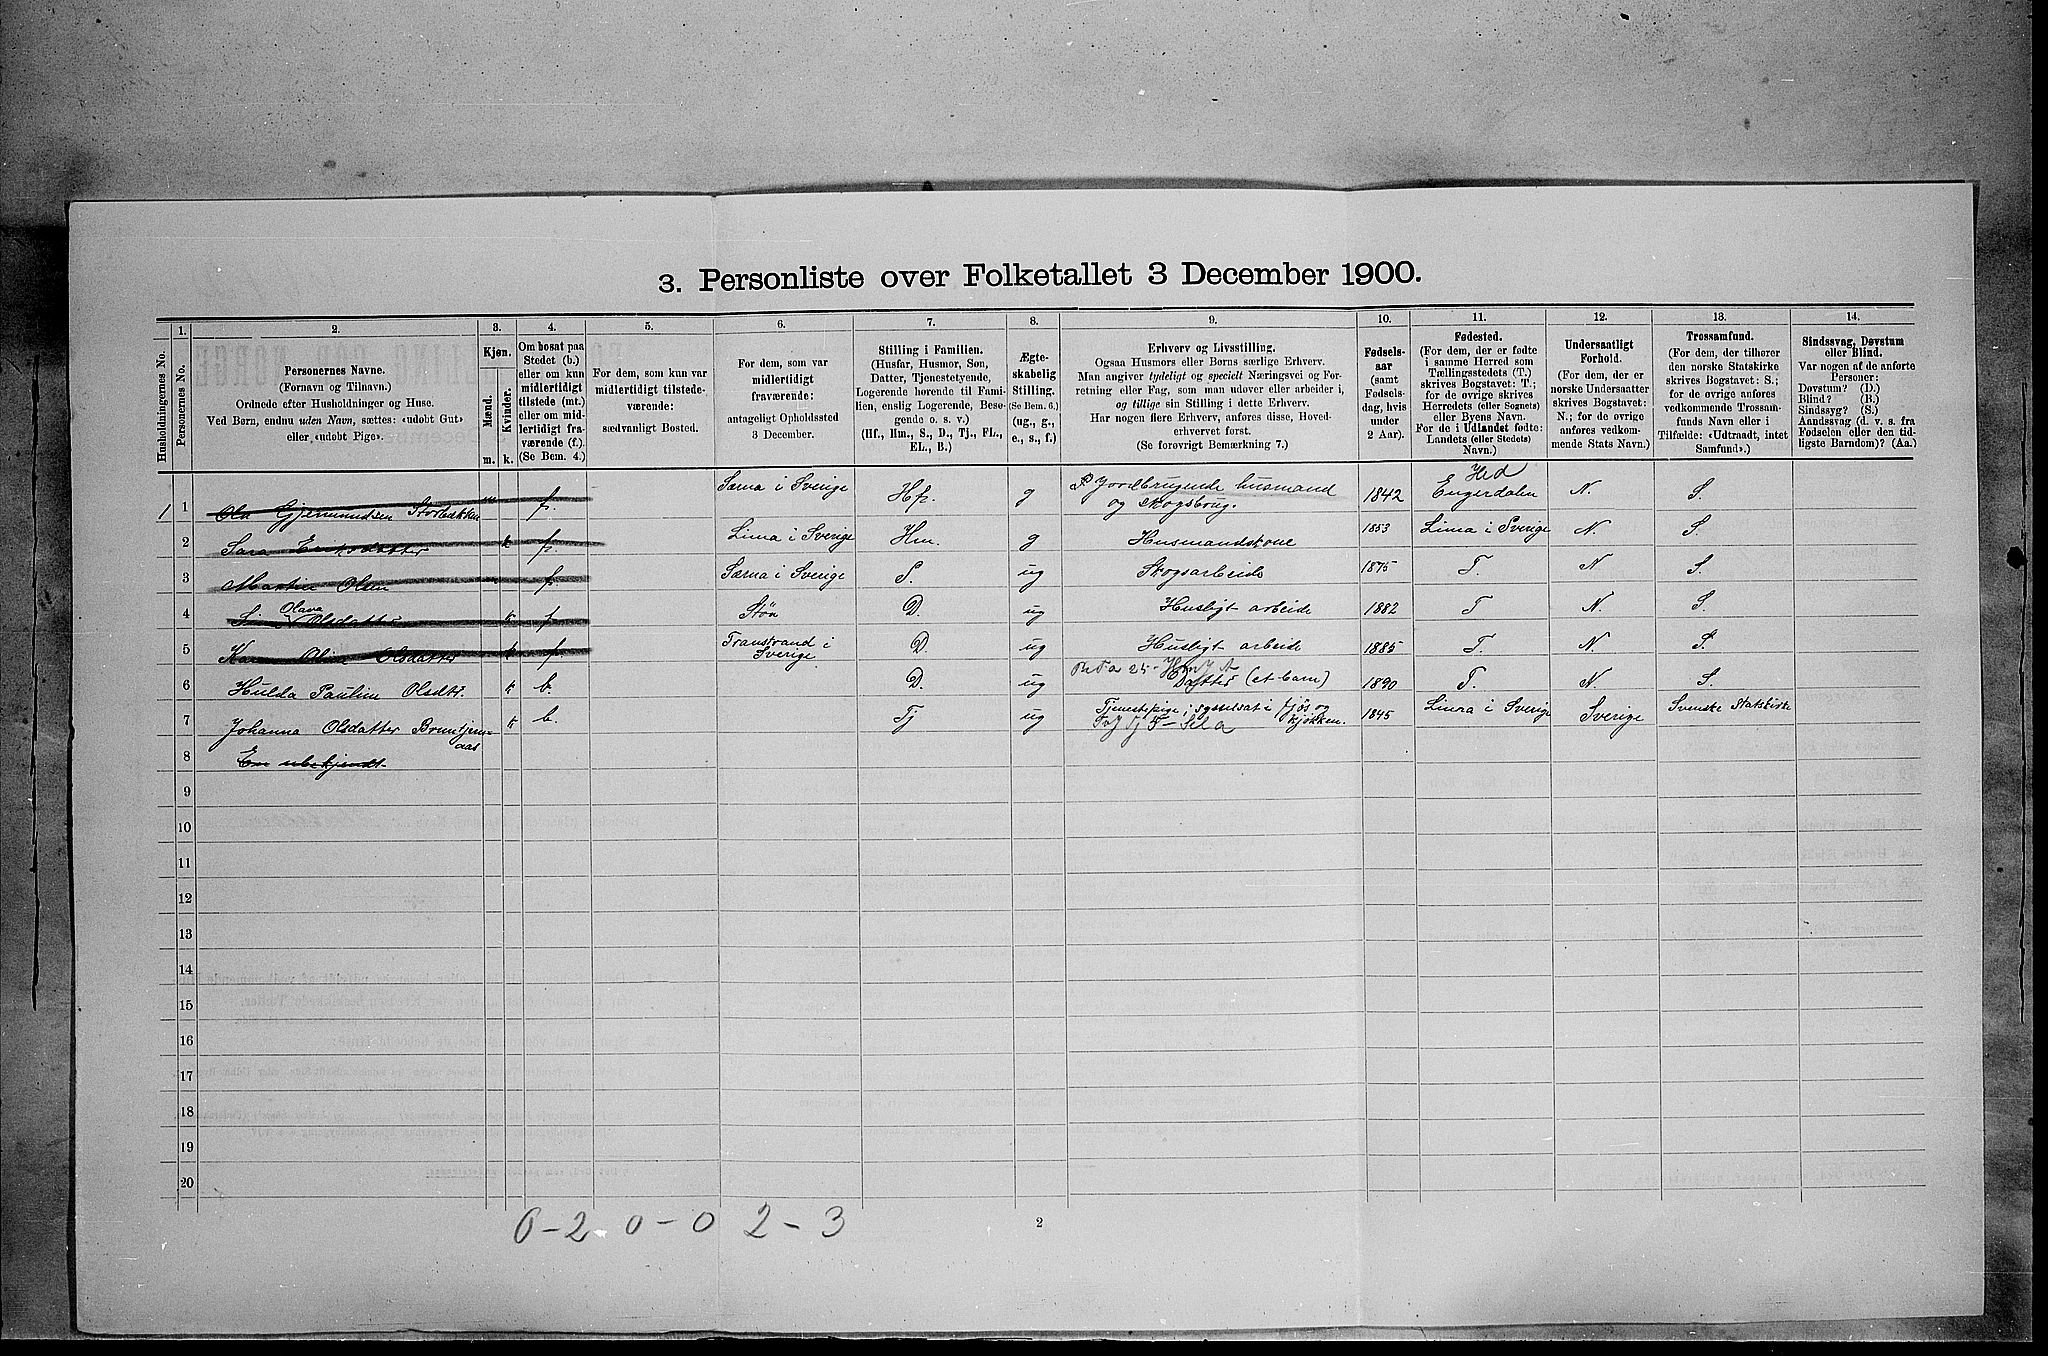 3. Personliste over Folketallet 3 December 1900.
Husholdningernes No.
1.
Personernes No.
2.
Personernes Navne.
(Fornavn og Tilnavn.)
Ordnede efter Husholdninger og Huse.
Ved Børn, endnu uden Navn, sættes: «udøbt Gut»
eller, «udøbt Pige».
3.
Kjøn.
Mænd.
Kvinder.
m.
k.
4.
Om bosat paa
Stedet (b.)
eller om kun
midlertidigt
tilstede (mt.)
eller om mid-
lertidigt fra-
værende (f.)
(Se Bem. 4.)
5.
For dem, som kun var
midlertidigt tilstede-
værende:
sædvanligt Bosted.
6.
For dem, som var
midlertidigt
fraværende:
antageligt Opholdssted
3 December.
7.
Stilling i Familien.
(Husfar, Husmor, Søn,
Datter, Tjenestetyende,
Logerende hørende til Fami-
lien, enslig Logerende, Besø-
gende o. s. v.)
(Hf., Hm., S., D., Tj., FL.,
EL., B.)
8.
Ægte-
skabelig
Stilling.
(Se Bem. 6.)
(ug., g.,
e., s., f.)
9.
Erhverv og Livsstilling.
Ogsaa Husmors eller Børns særlige Erhverv.
Man angiver tydeligt og specielt Næringsvei og For-
retning eller Fag, som man udøver eller arbeider i,
og tillige sin Stilling i dette Erhverv.
Har nogen flere Erhverv, anføres disse, Hoved-
erhvervet først.
(Se forøvrigt Bemærkning 7.)
10.
Fødsels-
aar
(samt
Fødsels-
dag, hvis
under
2 Aar).
11.
Fødested.
(For dem, der er fødte
i samme Herred som
Tællingsstedets (T.)
skrives Bogstavet: T.;
for de øvrige skrives
Herredets (eller Sognets)
eller Byens Navn.
For de i Udlandet fødte:
Landets (eller Stedets)
Navn.)
12.
Undersaatligt
Forhold.
(For dem, der er
norske Undersaatter
skrives Bogstavet:
N.; for de øvrige
anføres vedkom-
mende Stats Navn.)
13.
Trossamfund.
(For dem, der tilhører
den norske Statskirke
skrives Bogstavet: S.;
for de øvrige anføres
vedkommende Trossam-
funds Navn eller i
Tilfælde: «Udtraadt, intet
Samfund».)
14.
Sindssvag, Døvstum
eller Blind.
Var nogen af de anførte
Personer:
Døvstum? (D.)
Blind? (B.)
Sindssyg? (S.)
Aandssvag (d. v. s. fra
Fødselen eller den tid-
ligste Barndom)? (Aa.)
1 1 Ola Gjermundsen Storbækken m f. Særna i Sverige Hf. g Jordbrugende husmand 1842 Hed N. S.
og skogsbrug. Engerdalen
2 Sara Eriksdatter k f. Lima i Sverige Hm. g Husmandskone 1853 Lima i Sverige N. S.
3 Martin Olsen f. Særna i Sverige S. ug Skogsarbeide 1875 T. N S.
Olava
4 Olsdatter k f Støa D. ug Husligt arbeide 1882 T N. S.
5 Olsdatter k f Transtrand i D. ug Husligt arbeide 1885 T. N. S.
Sverige
6 Hulda Pauline Olsdt. k b. D. ug Datter (et barn) 1890 T. N. S.
7 Johanna Olsdatter k b. Tj ug Tjenestepige; sysselsat i fjøs og 1845 Lima i Sverige Sverige Svenske Statskirke
kjøkken.
8 En ubekjendt
9
10
11
12
13
14
15
16
17
18
19
20
0-2 0-0 2-3
2